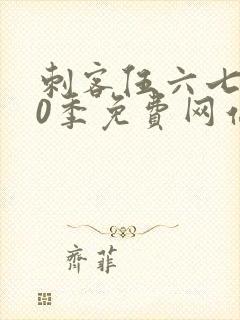 刺客伍六七
0季免费网
齐菲